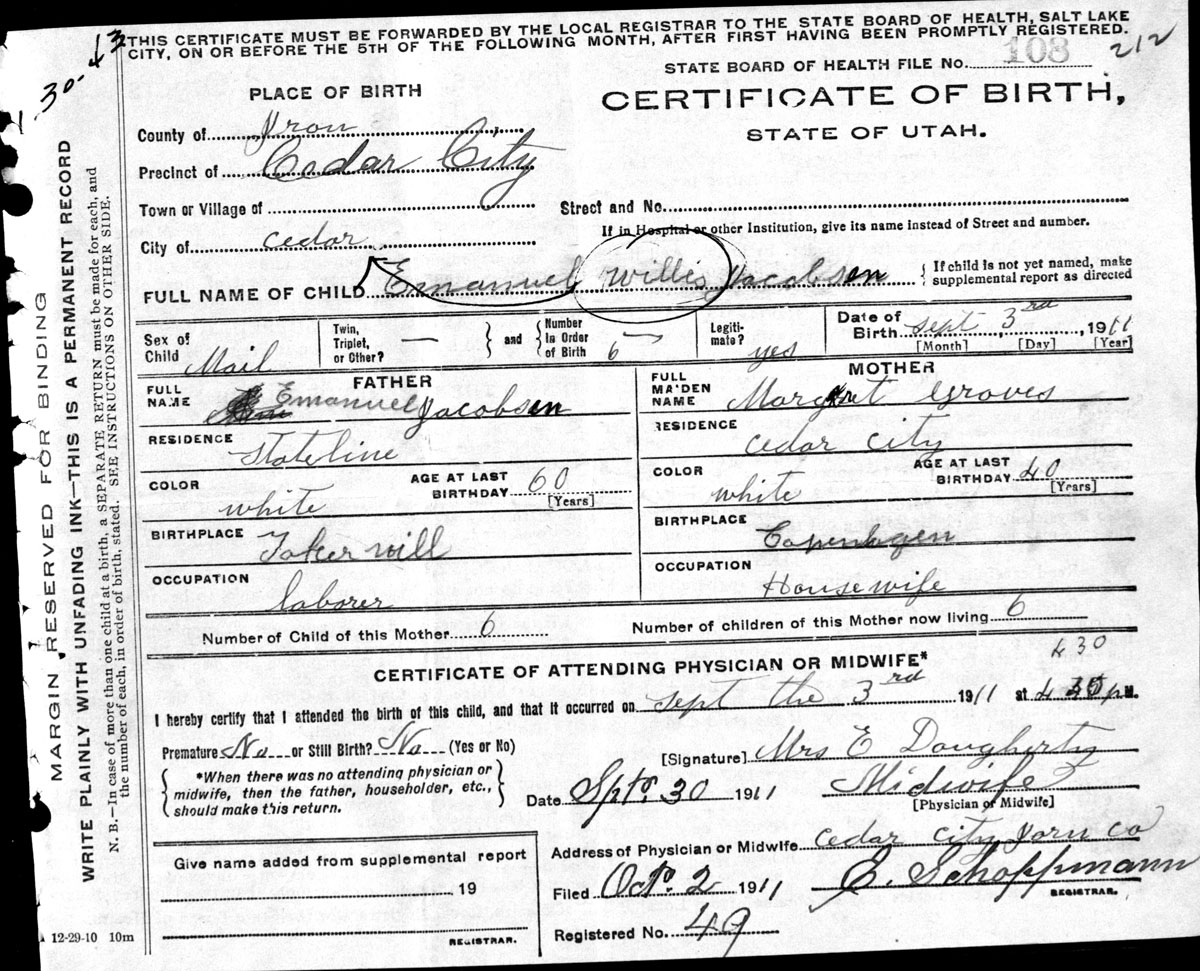 30-43
THIS CERTIFICATE MUST BE FORWARDED BY THE LOCAL REGISTRAR TO THE STATE BOARD OF HEALTH, SALT LAKE
CITY, ON OR BEFORE THE 5TH OF THE FOLLOWING MONTH, AFTER FIRST HAVING BEEN PROMPTLY REGISTERED.
STATE BOARD OF HEALTH FILE NO. 108 212
PLACE OF BIRTH
CERTIFICATE OF BIRTH,
STATE OF UTAH.
County of Iron
Precinct of Cedar City
Town or Village of
Street and No.
If in Hospital or other Institution, give its name instead of Street and number.
City of cedar
FULL NAME OF CHILD Emanuel Willis Jacobsen { If child is not yet named, make
supplemental report as directed
Sex of Child Mail
Twin, Triplet, or Other? —
and Number In Order of Birth 6
Legiti-mate? yes
Date of Birth Sept 3rd, 1911
[Month] [Day] [Year]
FATHER
FULL NAME Emanuel Jacobsen
RESIDENCE Stateline
COLOR white
AGE AT LAST BIRTHDAY 60 [Years]
BIRTHPLACE
OCCUPATION laborer
MOTHER
FULL MAIDEN NAME Margret Groves
RESIDENCE cedar city
COLOR white
AGE AT LAST BIRTHDAY 40 [Years]
BIRTHPLACE Copenhagen
OCCUPATION Housewife
Number of Child of this Mother 6
Number of children of this Mother now living 6
CERTIFICATE OF ATTENDING PHYSICIAN OR MIDWIFE*
430
I hereby certify that I attended the birth of this child, and that it occurred on sept the 3rd 1911 at 4 30 p M.
Premature No or Still Birth? No (Yes or No)
*When there was no attending physician or
midwife, then the father, householder, etc.,
should make this return.
[Signature] Mrs E Dougherty
Date Spt. 30 1911 Midwife
[Physician or Midwife]
Give name added from supplemental report
19
REGISTRAR.
Address of Physician or Midwife cedar city Jorn co
Filed Oct. 2 1911 E. Schoppmann
REGISTRAR.
Registered No. 49
12-29-10 10m
MARGIN RESERVED FOR BINDING
WRITE PLAINLY WITH UNFADING INK—THIS IS A PERMANENT RECORD
N. B.—In case of more than one child at a birth, a SEPARATE RETURN must be made for each, and
the number of each, in order of birth, stated. SEE INSTRUCTIONS ON OTHER SIDE.